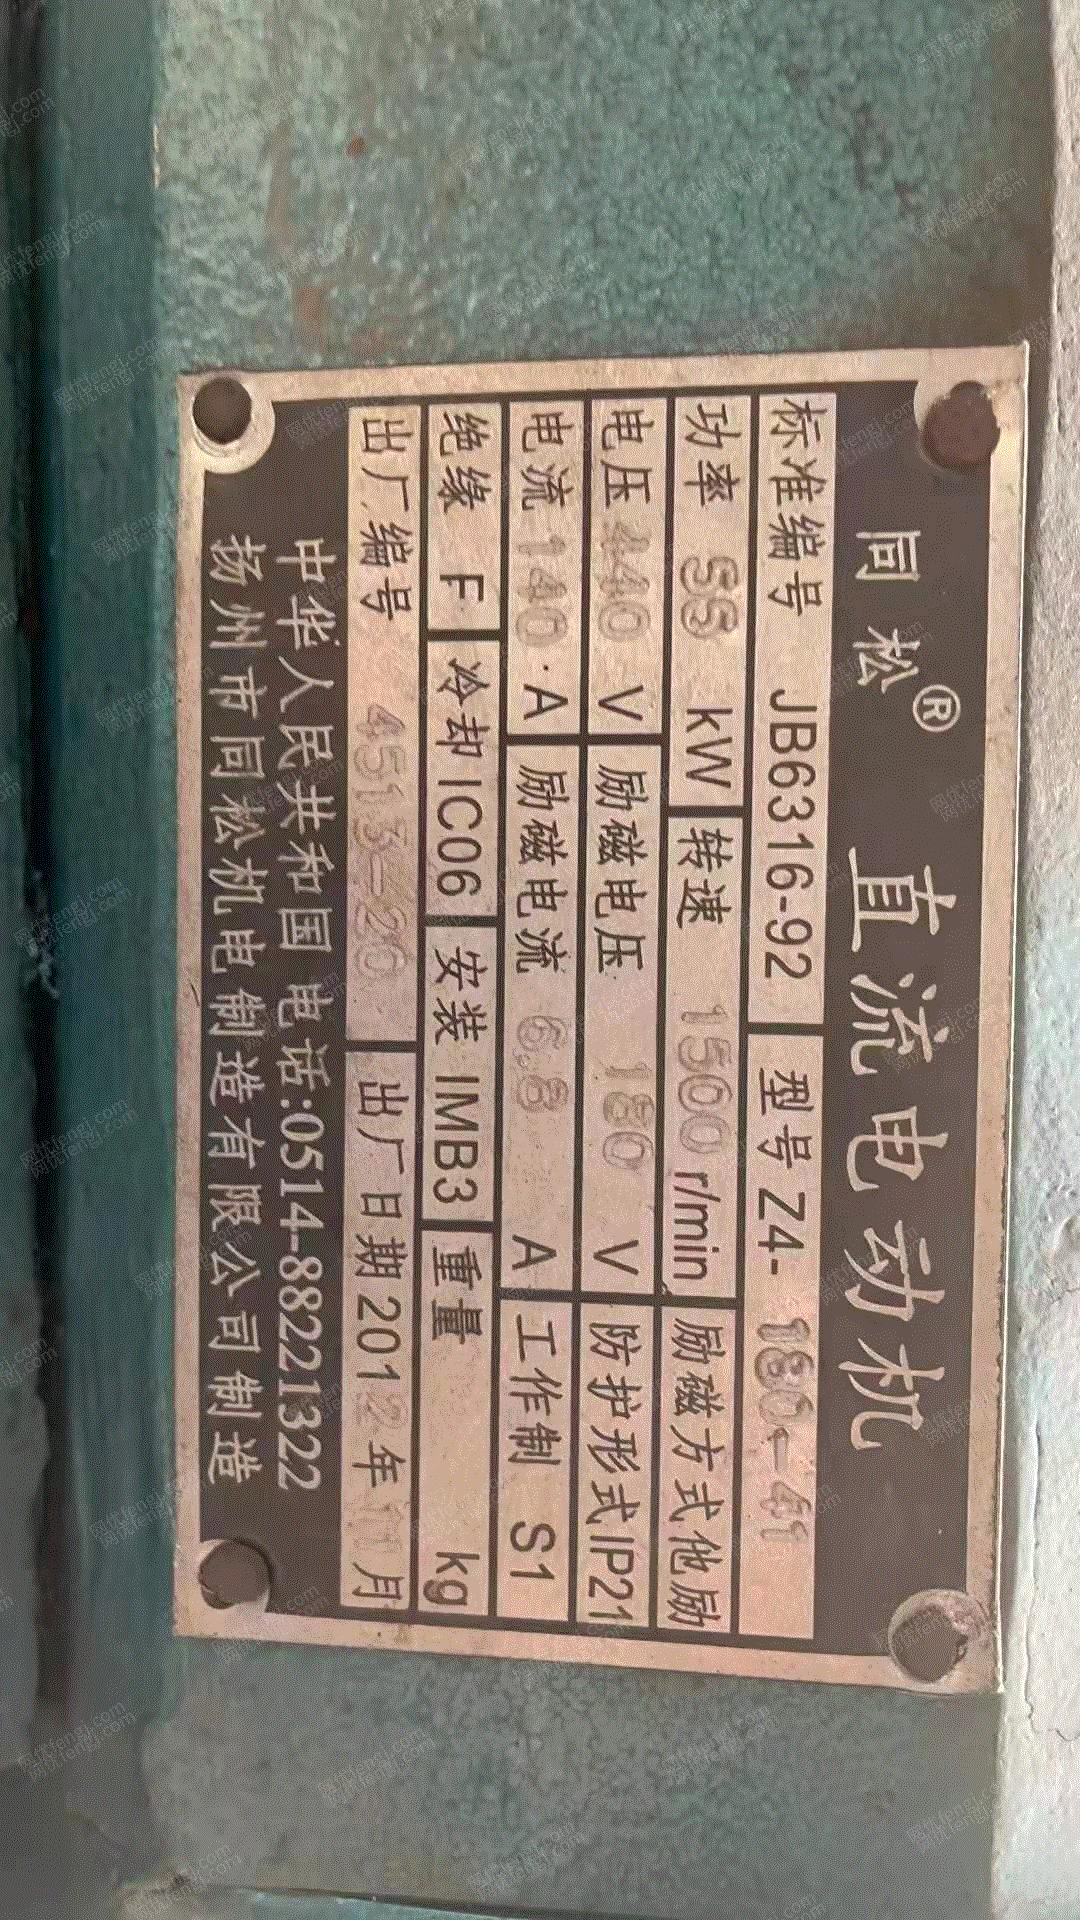 同松® 直流电动机
标准编号 JB6316-92 型号 Z4-180-41
功率 55 kW 转速 1500 r/min 励磁方式他励
电压 440 V 励磁电压 180 V 防护形式IP21
电流 140.A 励磁电流 6.8 A 工作制 S1
绝缘 F 冷却 IC06 安装 IMB3 重量 kg
出厂编号 4513-20 出厂日期 2012年11月
中华人民共和国 电话:0514-88221322
扬州市同松机电制造有限公司制造